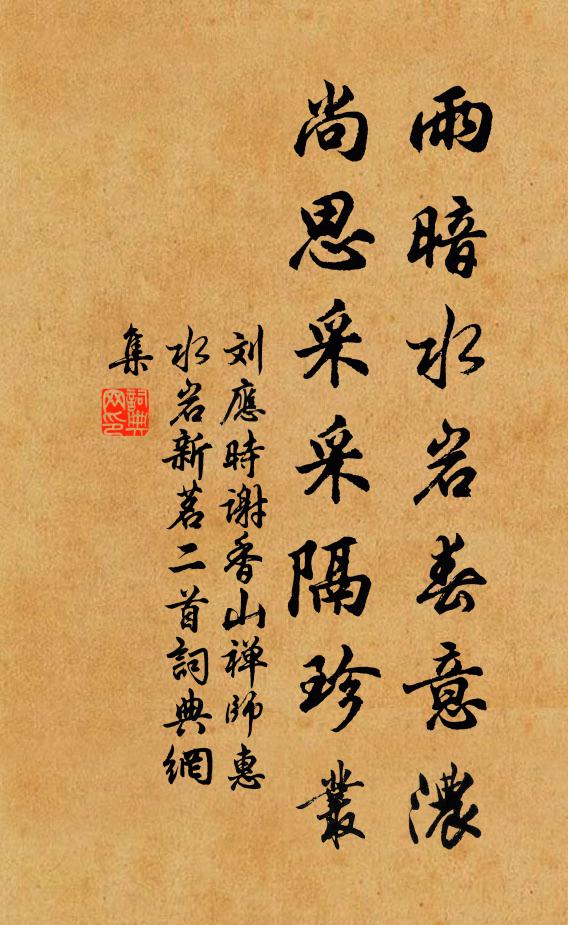 雨暗水岩春意濃
尚思采采隔珍叢
刘應時谢香山禅師惠
水岩新茗二首詞典網
集
詞典
网印